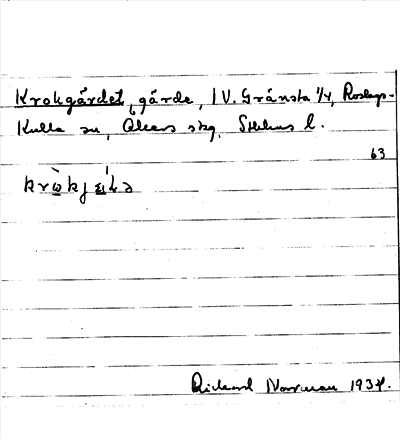 Krokgärdet, gärde, i V. Gränsta 1/4, Roslags-
Kulla sn, Åkers skg. Sthlms l.
63
Rickard Norrman 1934.